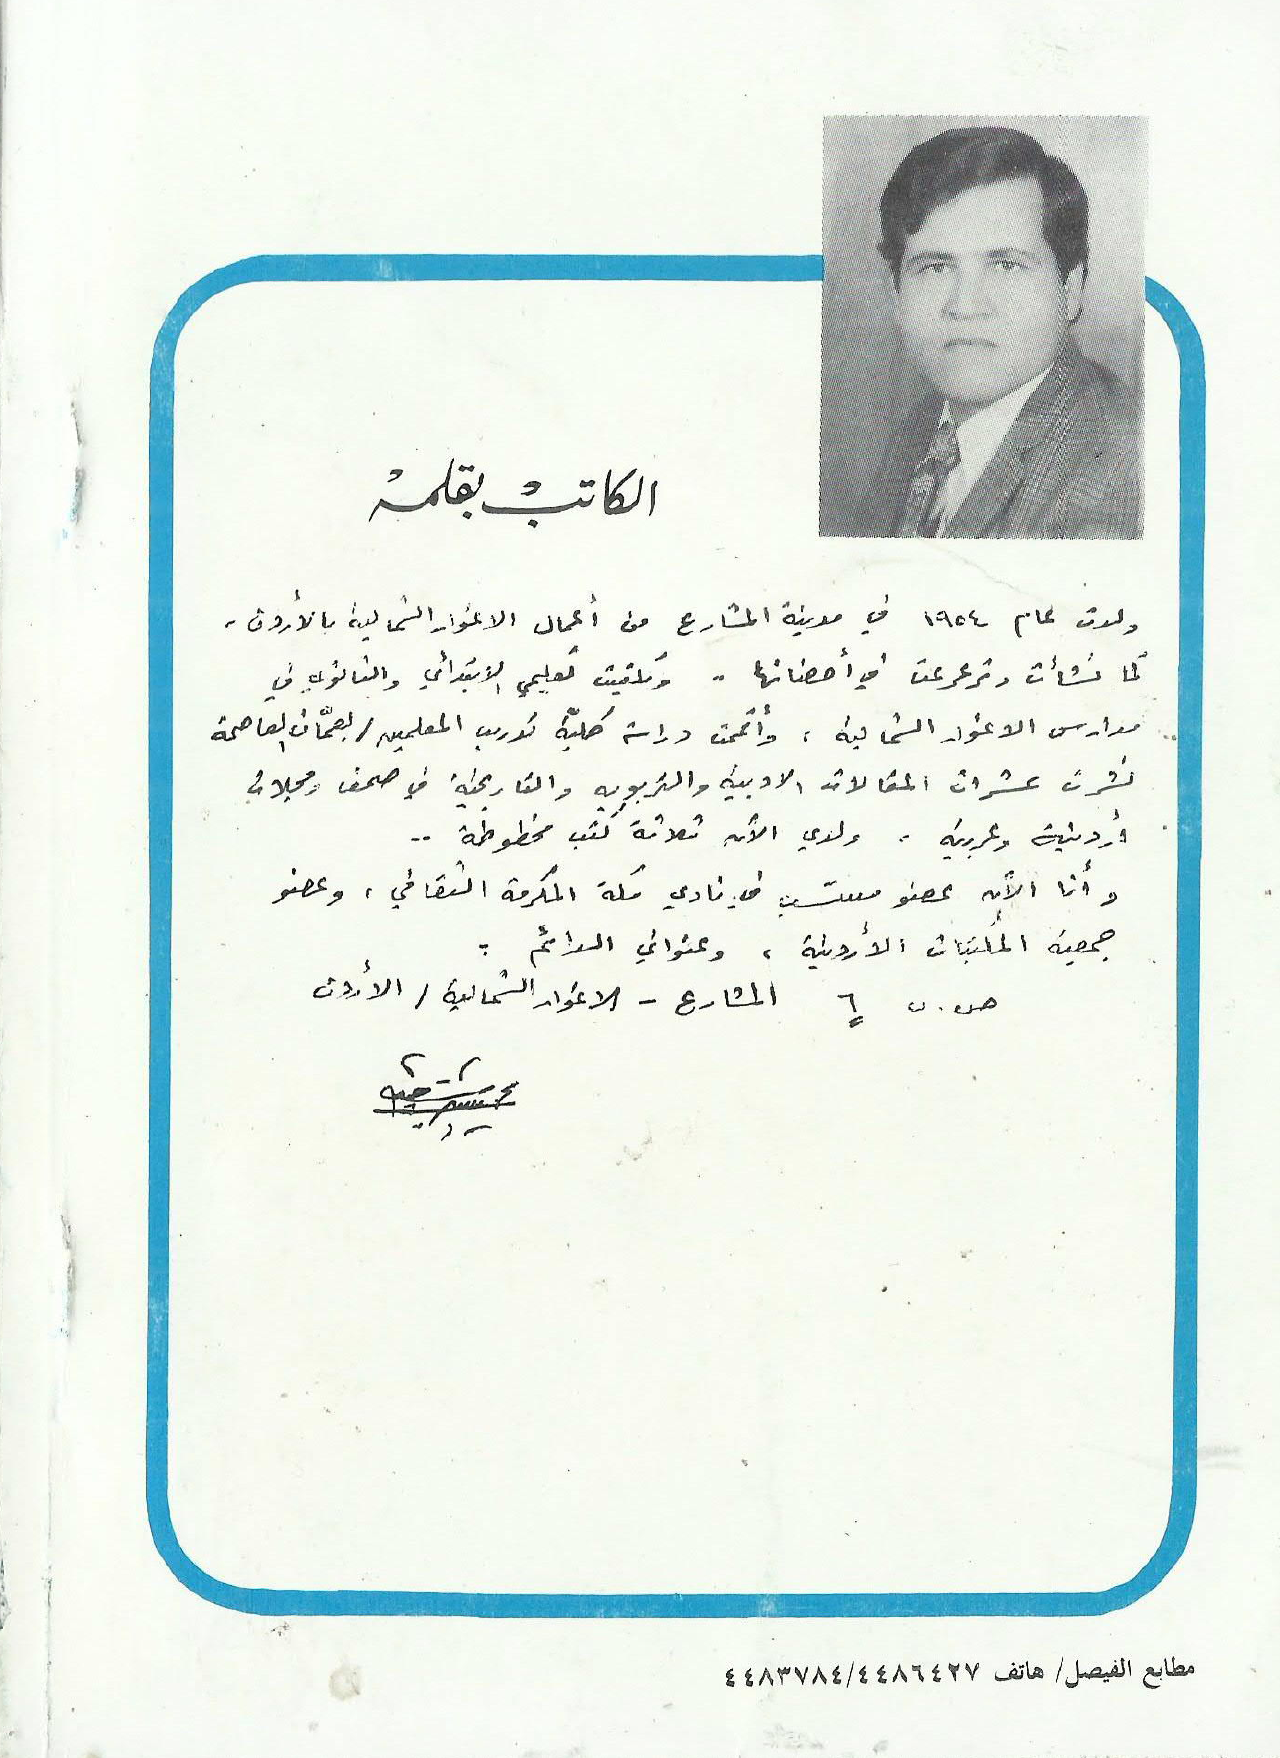 الكاتب بقلمه
ولدت عام ١٩٥٤ في مدينة المشارع من أعمال الاغوار الشمالية بالأردن.
كما نشأت وترعرعت في أحضانها .. وتلقيت تعليمي الابتدائي والثانوي في
مدارس الاغوار الشمالية ، وأتممت دراسة كلية تدريب المعلمين / بعمّان العاصمة
نشرت عشرات المقالات الادبية والتربويه والتاريخية في صحف ومجلات
أردنية وعربية . ولدي الآن ثلاثة كتب مخطوطة ..
و أنا الآن عضو منتسب في نادي مكة المكرمة الثقافي ، وعضو
جمعية المكتبات الأردنية ، وعنواني الدائم :
ص.ب ٦ المشارع - الاغوار الشمالية / الأردن
مطابع الفيصل/ هاتف ٤٤٨٣٧٨٤/٤٤٨٦٤٢٧